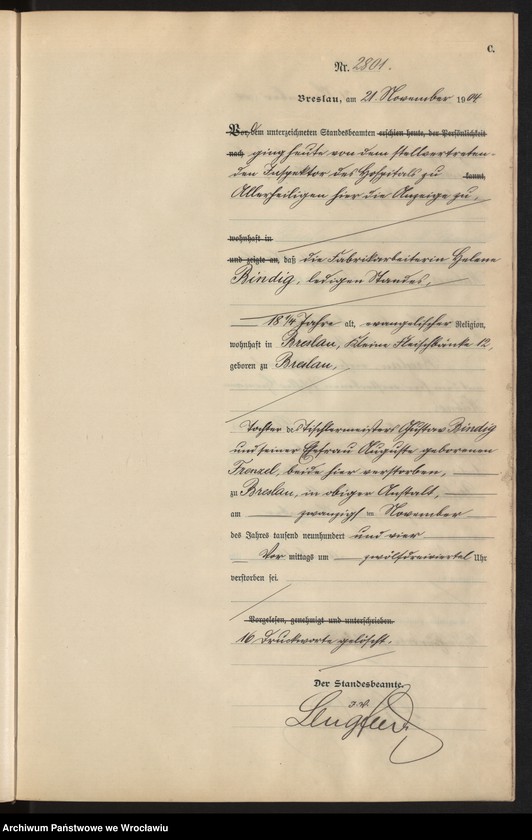 C.
Nr. 2801.
Breslau, am 21. November 1904
Vor dem unterzeichneten Standesbeamten erschien heute, der Persönlichkeit
nach ging heute von dem stellvertreten-
den Inspektor des Hospitals zu kannt,
Allerheiligen hier die Anzeige zu,
wohnhaft in
und zeigte an, daß die Fabrikarbeiterin Helene
Bindig, ledigen Standes,
18 1/4 Jahre alt, evangelischer Religion,
wohnhaft in Breslau, Kleine Fleischbänke 12,
geboren zu Breslau,
Tochter des Tischlermeisters Gustav Bindig
und seiner Ehefrau Auguste geborenen
Frenzel, beide hier verstorben,
zu Breslau, in obiger Anstalt,
am zwanzigsten November
des Jahres tausend neunhundert und vier
Vor mittags um zwölfdreiviertel Uhr
verstorben sei.
Vorgelesen, genehmigt und unterschrieben.
16 Druckworte gelöscht.
Der Standesbeamte.
I. V.
Archiwum Państwowe we Wrocławiu